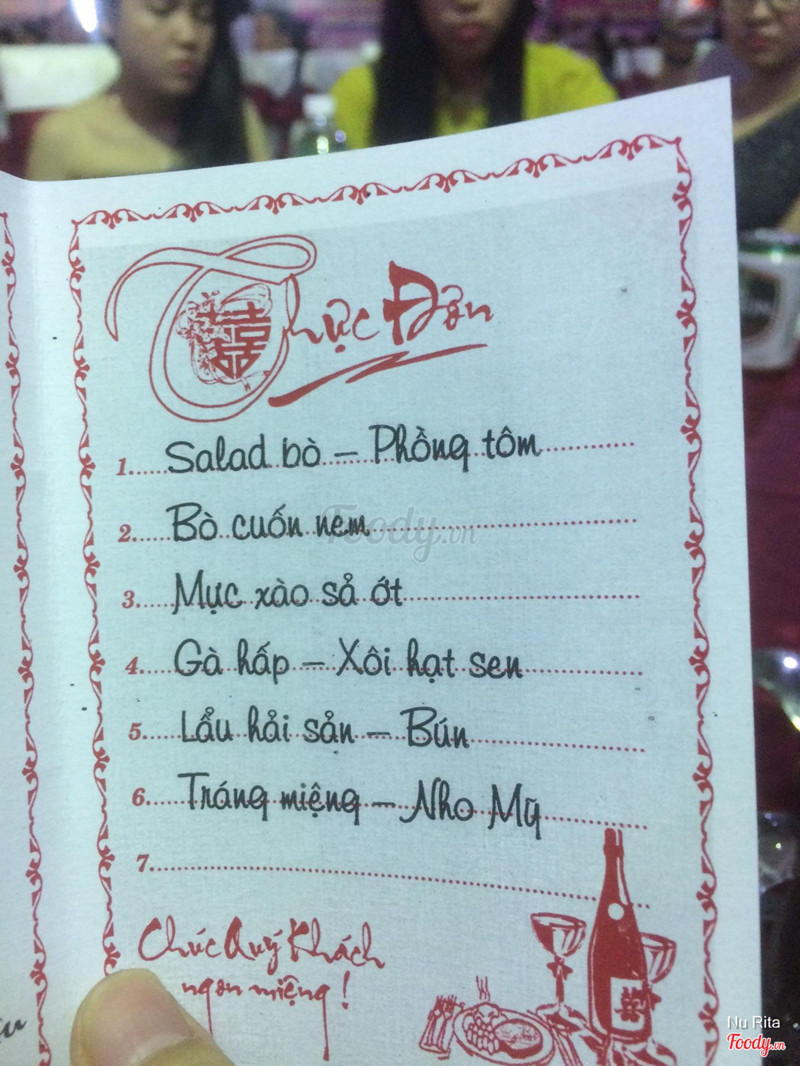 Thực Đơn
1. Salad bò – Phồng tôm
2. Bò cuốn nem
3. Mực xào sả ớt
4. Gà hấp – Xôi hạt sen
5. Lẩu hải sản – Bún
6. Tráng miệng – Nho Mỹ
7.
Chúc Quý Khách
ngon miệng!
Foody.vn
Nu Rita
Foody.vn